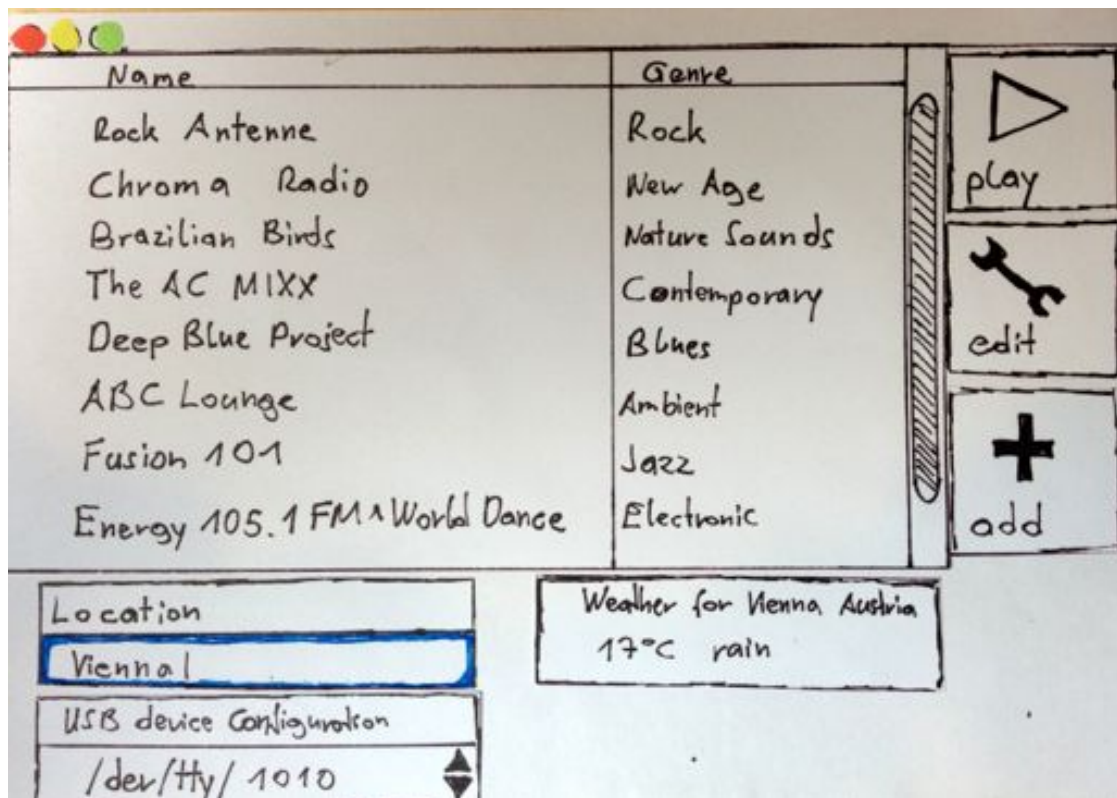 Name Genre
Rock Antenne Rock
Chroma Radio New Age
Brazilian Birds Nature Sounds
The AC MIXX Contemporary
Deep Blue Project Blues
ABC Lounge Ambient
Fusion 101 Jazz
Energy 105.1 FM World Dance Electronic
play
edit
add
Location
Vienna|
Weather for Vienna Austria
17°C rain
USB device Configuration
/dev/tty/1010